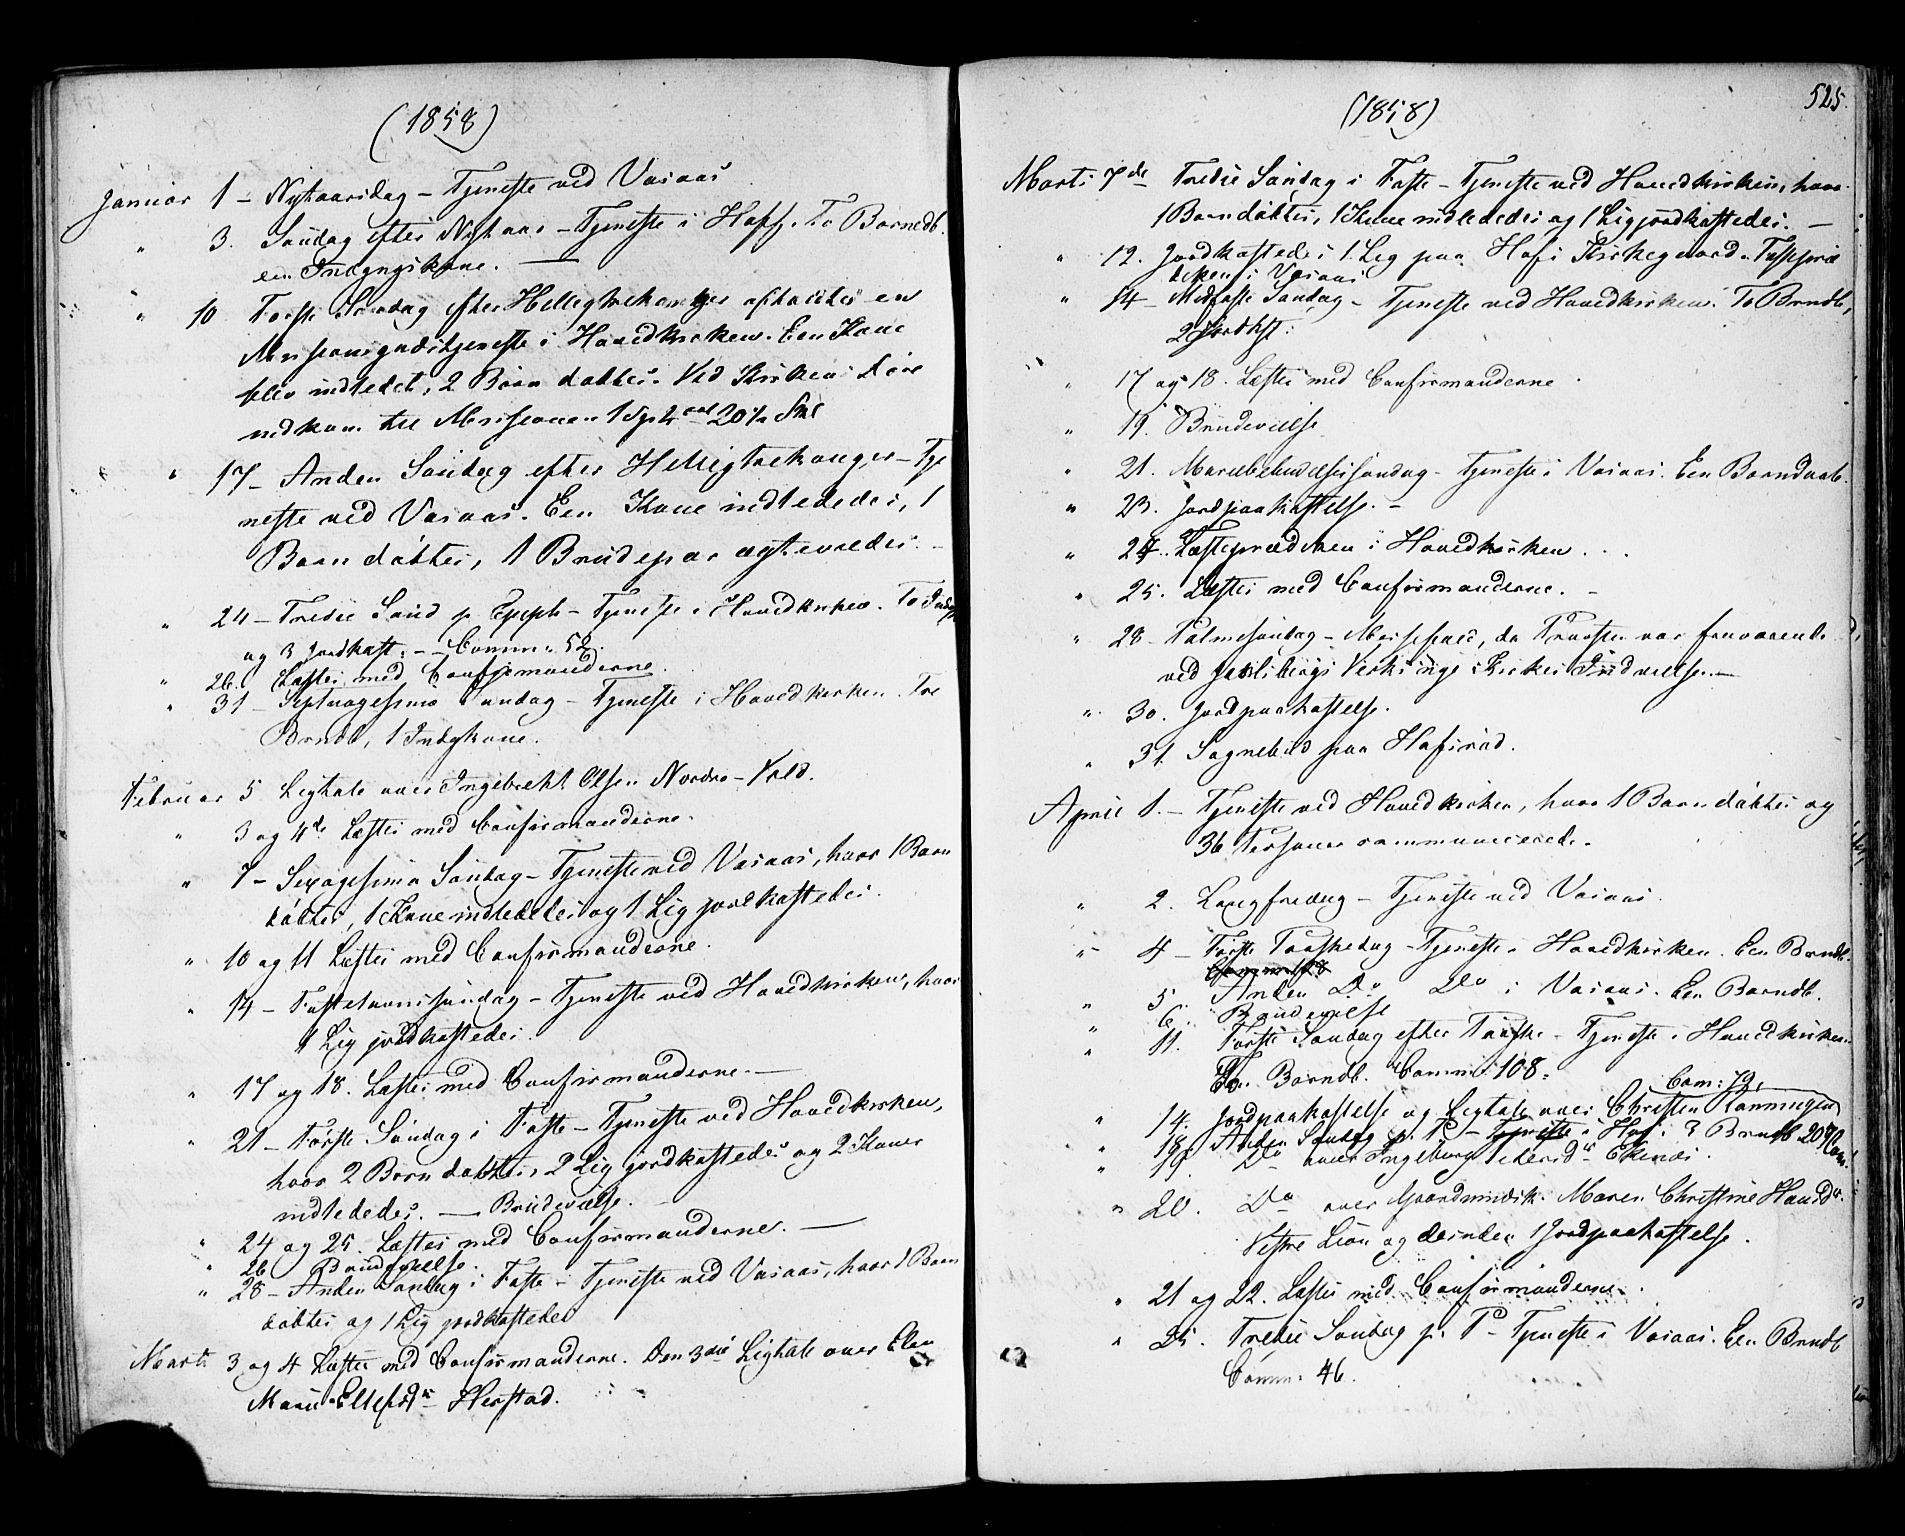 (1858)
Januar 1 – Nytaarsdag – Tjeneste ved Vasaas
" 3. Søndag efter Nytaar – Tjeneste i Hoff. To Barnedb.
en Indgngskone. —
" 10 Første Søndag efter Helligtrekonger afholdtes en
Missionsgudstjeneste i Hovedkirken. Een Kone
blev indledet, 2 Børn døbtes. Ved Kirkens Døre
indkom til Missionen 1 Sp 2 ort 20½ Skl
" 17 – Anden Søndag efter Helligtrekonger – Tje
neste ved Vasaas. Een Kone indlededes, 1
Barn døbtes, 1 Brudepar ægteviedes. –
" 24 – Tredie Sønd p. Epiph – Tjeneste i Hovedkirken. To
og 3 Jordkast: – – Comm: 52.
" 26. Læstes med Confirmanderne.
" 31 – Septuagesima Søndag – Tjeneste i Hovedkirken. Tre
Brndb, 1 Indgkone.
Februar 5 Ligtale over Ingebreth Olsen Nordre-
" 3 og 4de Læstes med Confirmanderne.
" 7 – Sexagesima Søndag – Tjeneste ved Vasaas, hvor 1 Barn
døbtes, 1 Kone indlededes og 1 Lig jordkastedes.
" 10 og 11 Læstes med Confirmanderne.
" 14 – Fastelavnssøndag – Tjeneste ved Hovedkirken, hvor
1 Lig jordkastedes.
" 17 og 18. Læstes med Confirmanderne. —
" 21 – Første Søndag i Faste – Tjeneste ved Hovedkirken,
hvor 2 Børn døbtes, 2 Lig jordkastedes og 2 Koner
indlededes. — Brudevielse.
" 24 og 25. Læstes med Confirmanderne. —
" 26 Brudevielse.
" 28 – Anden Søndag i Faste – Tjeneste ved Vasaas, hvor 1 Barn
døbtes og 1 Lig jordkastedes
Marts 3 og 4 Læstes med Confirmanderne. Den 3die Ligtale over Elen
Marie Ellefsdr Herstad.
(1858)
525.
Marts 7de Tredie Søndag i Faste – Tjeneste ved Hovedkirken, hvor
1 Barn døbtes, 1 Kone indlededes og 1 Lig jordkastedes. —
" 12. Jordkastedes 1 Lig paa Hofs Kirkegaard. Fastepræ
diken i Vasaas
" 14 – Midfaste Søndag – Tjeneste ved Hovedkirken. To Brndb,
2 Jordkst:
" 17 og 18. Læstes med Confirmanderne.
" 19. Brudevielse
" 21. Mariæbebudelsessøndag – Tjeneste i Vasaas. Een Barndaab.
" 23. Jordpaakastelse. –
" 24. Fasteprædiken i Hovedkirken. . .
" 25. Læstes med Confirmanderne. –
" 28 – Palmesøndag – Messefald, da Præsten var fraværende
ved Jarlsbergs Værks nye Kirkes Indvielse. —
" 30. Jordpaakastelse.
" 31. Sognebud paa Hofsrud.
April 1. – Tjeneste ved Hovedkirken, hvor 1 Barn døbtes og
36 Personer communicerede.
" 2. Langfredag – Tjeneste ved Vasaas.
" 4 – Første Paaskedag – Tjeneste i Hovedkirken. Een Brndb.
" 5. Anden Do Do i Vasaas. Een Barndb.
" 6. Brudevielse
" 11. Første Søndag efter Paaske – Tjeneste i Hovedkirken.
To Barndb. Comm: 108.
Com: 79,
" 14. Jordpaakastelse og Ligtale over Christen Rønningen
" 18. Anden Søndag p. P – Tjeneste i Hof: 3 Brndb
" 19. Do over Ingeborg Pedersdr Ekenæs.
" 20. Do over Gaardmandsk. Maren Christine Hansdr.
Vestre Lien og desuden 1 Jordpaakastelse.
" 21 og 22. Læstes med Confirmanderne.
" 25. Tredie Søndag p. P – Tjeneste i Vasaas. Een Brndb
Comm: 46.